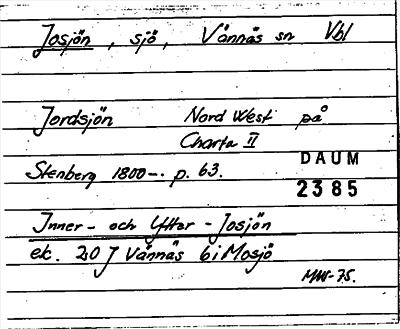 Josjön, sjö, Vännäs sn Vbl
Jordsjön Nord West på
Charta II
Stenberg 1800-. p. 63.
DAUM
2385
Inner- och Ytter-Josjön
ek. 20 J Vännäs bi Mosjö
MW-75.